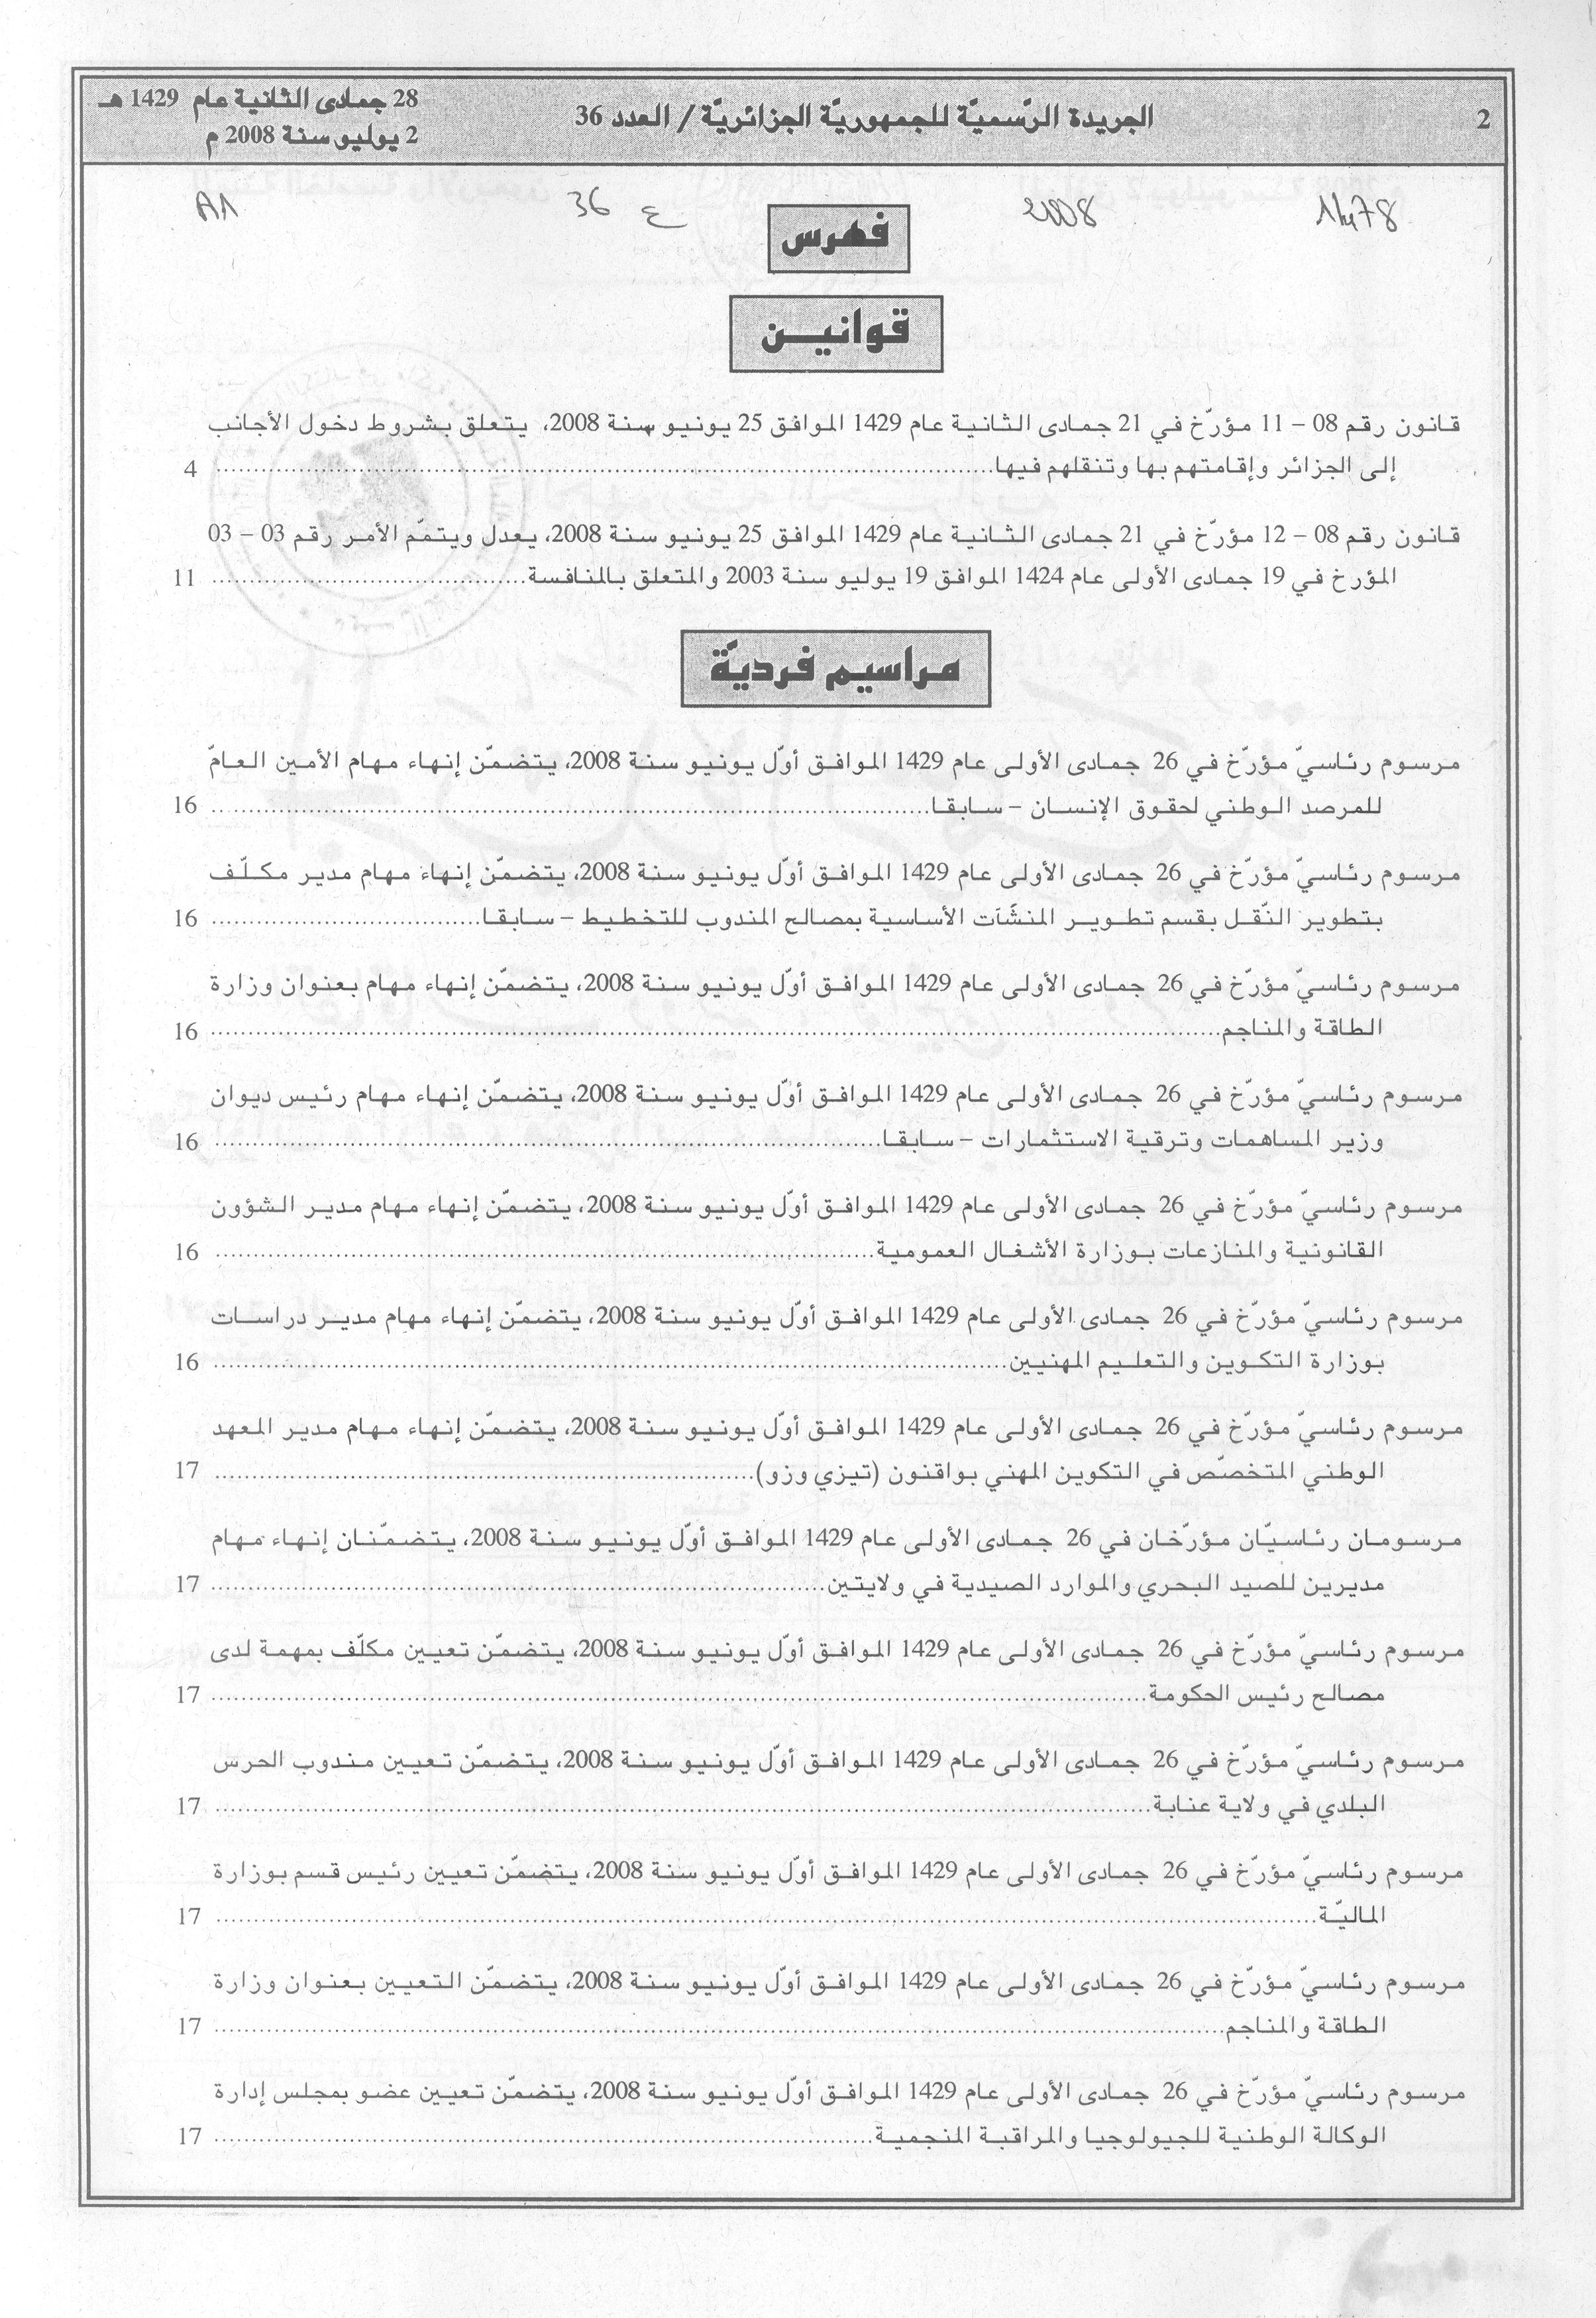 2
الجريدة الرّسميّة للجمهوريّة الجزائريّة / العدد 36
28 جمادى الثانية عام 1429 هـ
2 يوليو سنة 2008 م
11478 2008 ع 36 A1
فهرس
قوانيـن
قانون رقم 08 – 11 مؤرّخ في 21 جمادى الثانية عام 1429 الموافق 25 يونيو سنة 2008، يتعلق بشروط دخول الأجانب
إلى الجزائر وإقامتهم بها وتنقلهم فيها........ 4
قانون رقم 08 – 12 مؤرّخ في 21 جمادى الثانية عام 1429 الموافق 25 يونيو سنة 2008، يعدل ويتمّم الأمر رقم 03 – 03
المؤرخ في 19 جمادى الأولى عام 1424 الموافق 19 يوليو سنة 2003 والمتعلق بالمنافسة........ 11
مراسيم فرديّة
مرسوم رئاسيّ مؤرّخ في 26 جمادى الأولى عام 1429 الموافق أوّل يونيو سنة 2008، يتضمّن إنهاء مهام الأمين العامّ
للمرصد الوطني لحقوق الإنسان – سابقا........ 16
مرسوم رئاسيّ مؤرّخ في 26 جمادى الأولى عام 1429 الموافق أوّل يونيو سنة 2008، يتضمّن إنهاء مهام مدير مكلّف
بتطوير النّقل بقسم تطوير المنشَآت الأساسية بمصالح المندوب للتخطيط – سابقا........ 16
مرسوم رئاسيّ مؤرّخ في 26 جمادى الأولى عام 1429 الموافق أوّل يونيو سنة 2008، يتضمّن إنهاء مهام بعنوان وزارة
الطاقة والمناجم........ 16
مرسوم رئاسيّ مؤرّخ في 26 جمادى الأولى عام 1429 الموافق أوّل يونيو سنة 2008، يتضمّن إنهاء مهام رئيس ديوان
وزير المساهمات وترقية الاستثمارات – سابقا........ 16
مرسوم رئاسيّ مؤرّخ في 26 جمادى الأولى عام 1429 الموافق أوّل يونيو سنة 2008، يتضمّن إنهاء مهام مدير الشؤون
القانونية والمنازعات بوزارة الأشغال العمومية........ 16
مرسوم رئاسيّ مؤرّخ في 26 جمادى الأولى عام 1429 الموافق أوّل يونيو سنة 2008، يتضمّن إنهاء مهام مدير دراسات
بوزارة التكوين والتعليم المهنيين........ 16
مرسوم رئاسيّ مؤرّخ في 26 جمادى الأولى عام 1429 الموافق أوّل يونيو سنة 2008، يتضمّن إنهاء مهام مدير المعهد
الوطني المتخصّص في التكوين المهني بواقنون (تيزي وزو)........ 17
مرسومان رئاسيّان مؤرّخان في 26 جمادى الأولى عام 1429 الموافق أوّل يونيو سنة 2008، يتضمّنان إنهاء مهام
مديرين للصيد البحري والموارد الصيدية في ولايتين........ 17
مرسوم رئاسيّ مؤرّخ في 26 جمادى الأولى عام 1429 الموافق أوّل يونيو سنة 2008، يتضمّن تعيين مكلّف بمهمة لدى
مصالح رئيس الحكومة........ 17
مرسوم رئاسيّ مؤرّخ في 26 جمادى الأولى عام 1429 الموافق أوّل يونيو سنة 2008، يتضمّن تعيين مندوب الحرس
البلدي في ولاية عنابة........ 17
مرسوم رئاسيّ مؤرّخ في 26 جمادى الأولى عام 1429 الموافق أوّل يونيو سنة 2008، يتضمّن تعيين رئيس قسم بوزارة
الماليّة........ 17
مرسوم رئاسيّ مؤرّخ في 26 جمادى الأولى عام 1429 الموافق أوّل يونيو سنة 2008، يتضمّن التعيين بعنوان وزارة
الطاقة والمناجم........ 17
مرسوم رئاسيّ مؤرّخ في 26 جمادى الأولى عام 1429 الموافق أوّل يونيو سنة 2008، يتضمّن تعيين عضو بمجلس إدارة
الوكالة الوطنية للجيولوجيا والمراقبة المنجمية........ 17